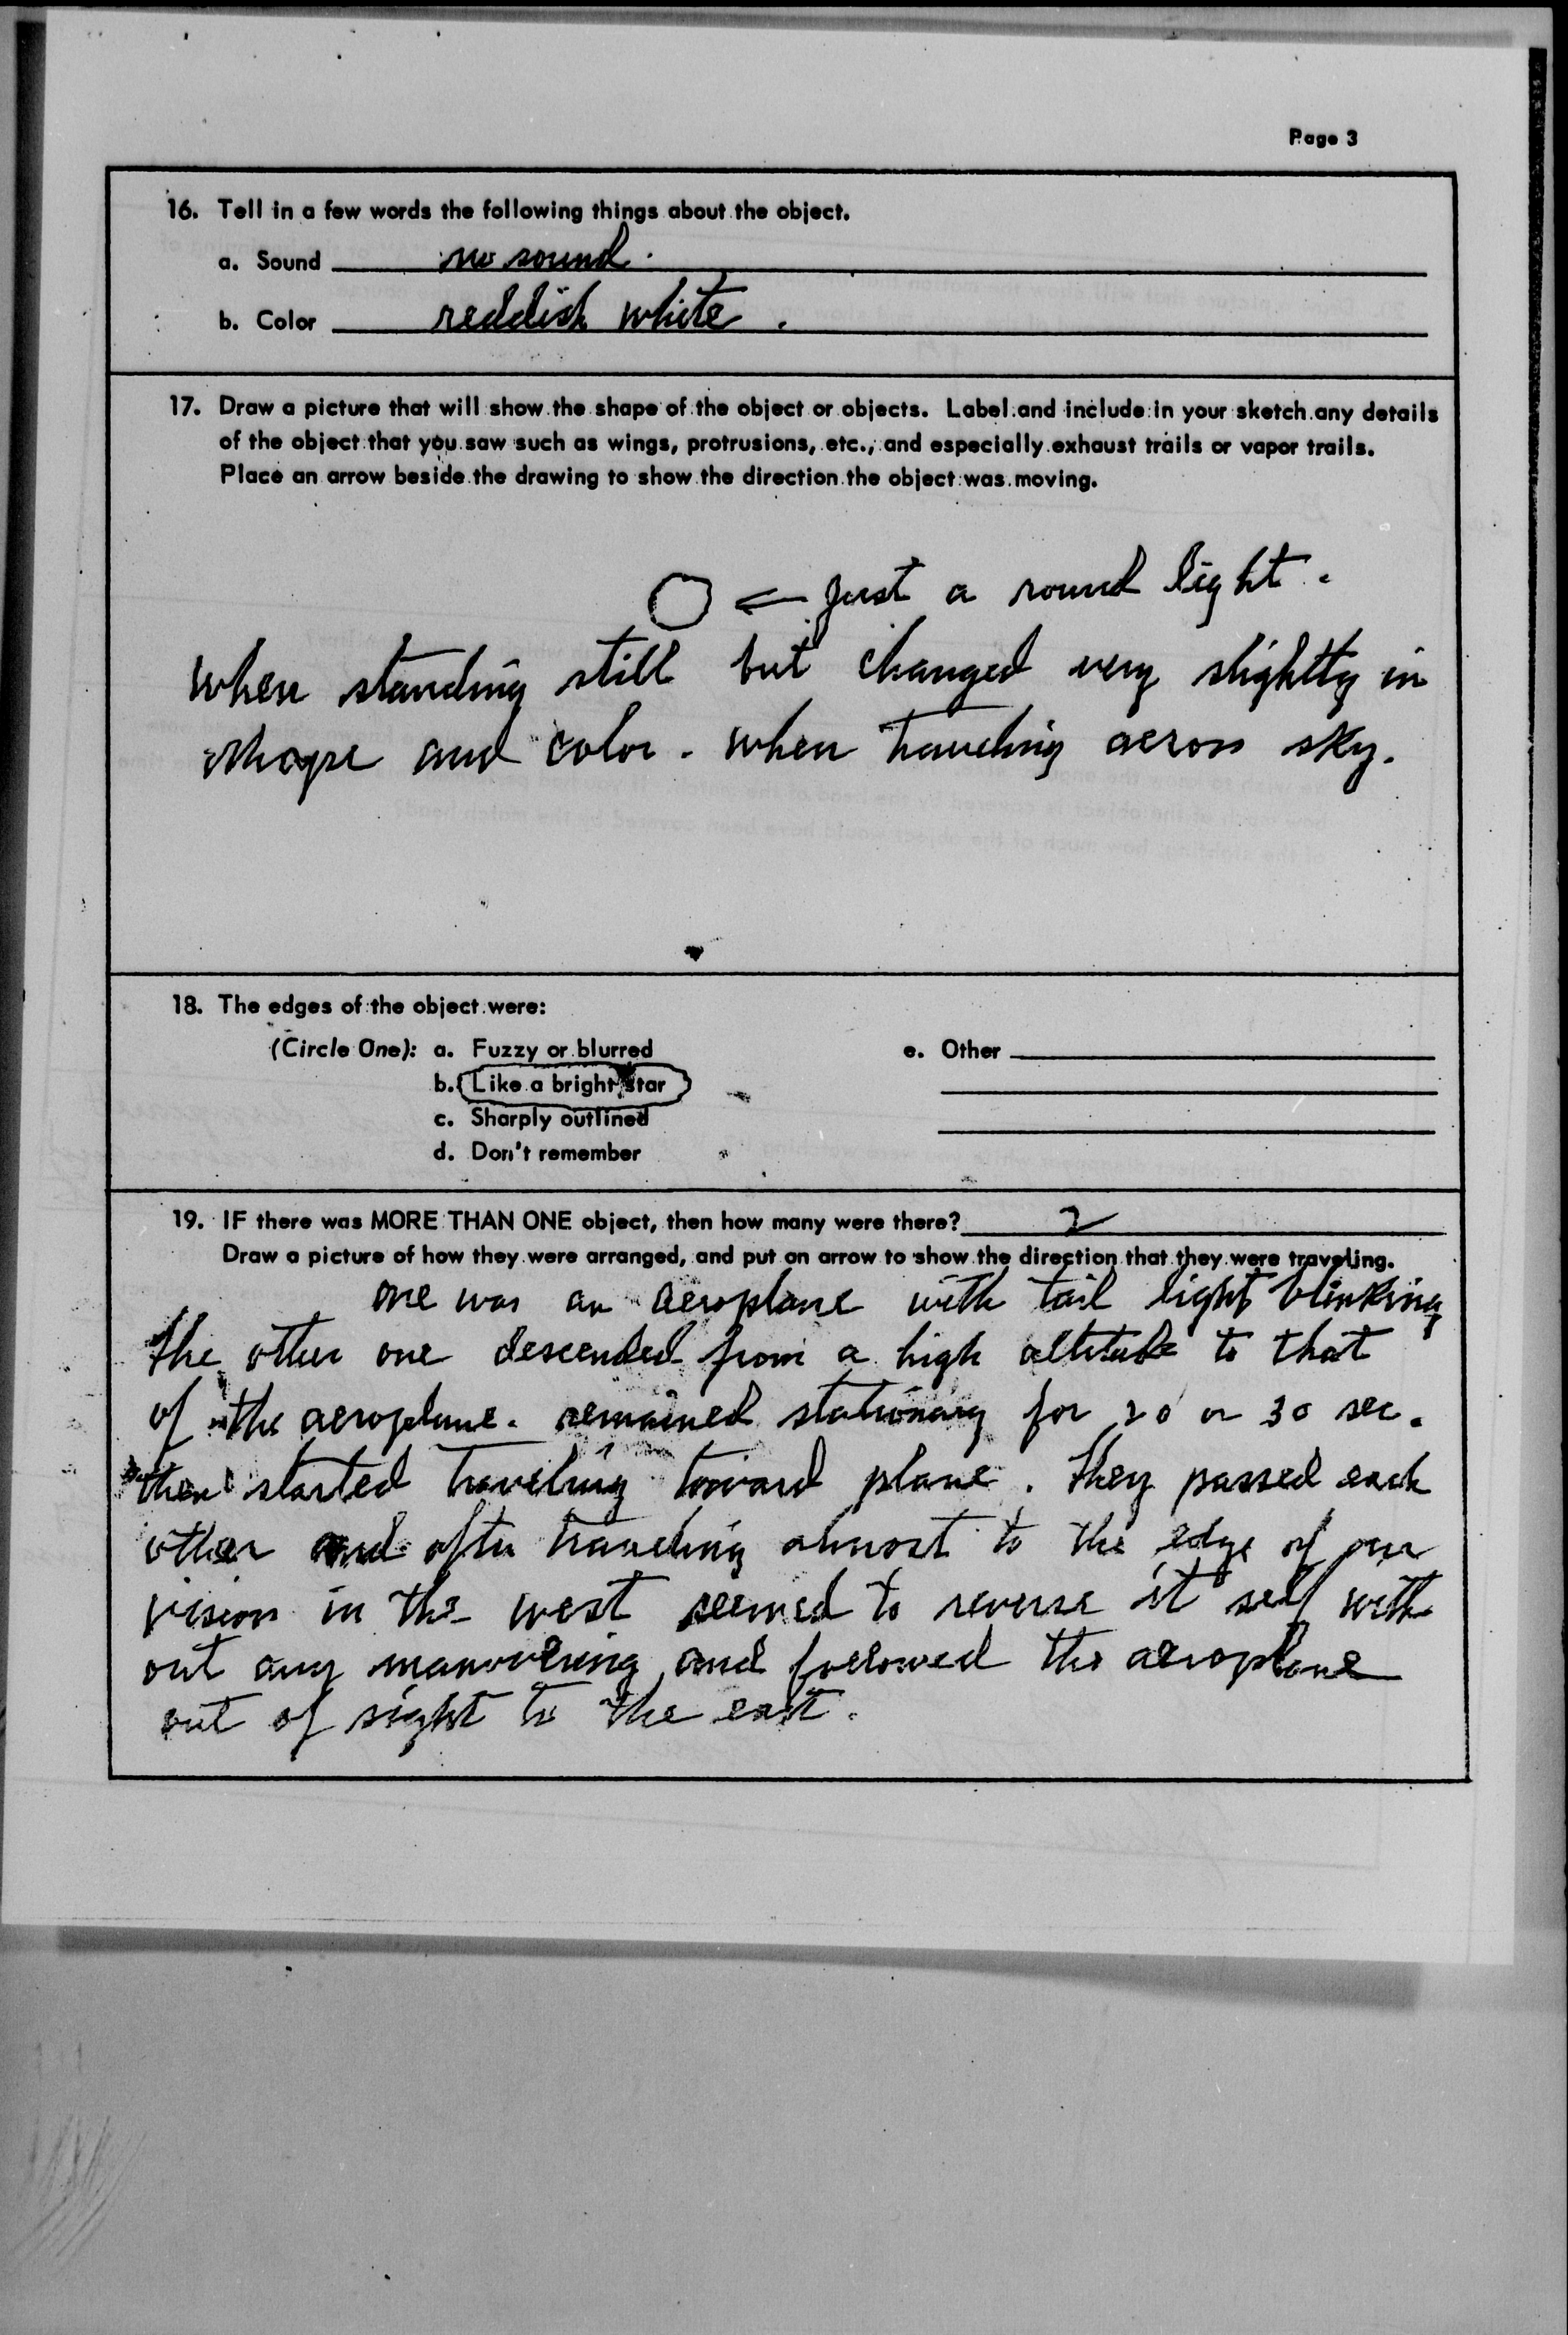 Page 3
16. Tell in a few words the following things about the object.
a. Sound no sound.
b. Color reddish white.
17. Draw a picture that will show the shape of the object or objects. Label and include in your sketch any details
of the object that you saw such as wings, protrusions, etc., and especially exhaust trails or vapor trails.
Place an arrow beside the drawing to show the direction the object was moving.
just a round light.
when standing still but changed very slightly in
shape and color. when traveling across sky.
18. The edges of the object were:
(Circle One): a. Fuzzy or blurred
b. Like a bright star
c. Sharply outlined
d. Don't remember
e. Other
19. IF there was MORE THAN ONE object, then how many were there? 2
Draw a picture of how they were arranged, and put an arrow to show the direction that they were traveling.
one was an aeroplane with tail light blinking,
the other one descended from a high altitude to that
of the aeroplane. remained stationary for 20 or 30 sec.
then started traveling toward plane. they passed each
other and after traveling almost to the edge of our
vision in the west seemed to reverse it self with
out any manuvering and followed the aeroplane
out of sight to the east.